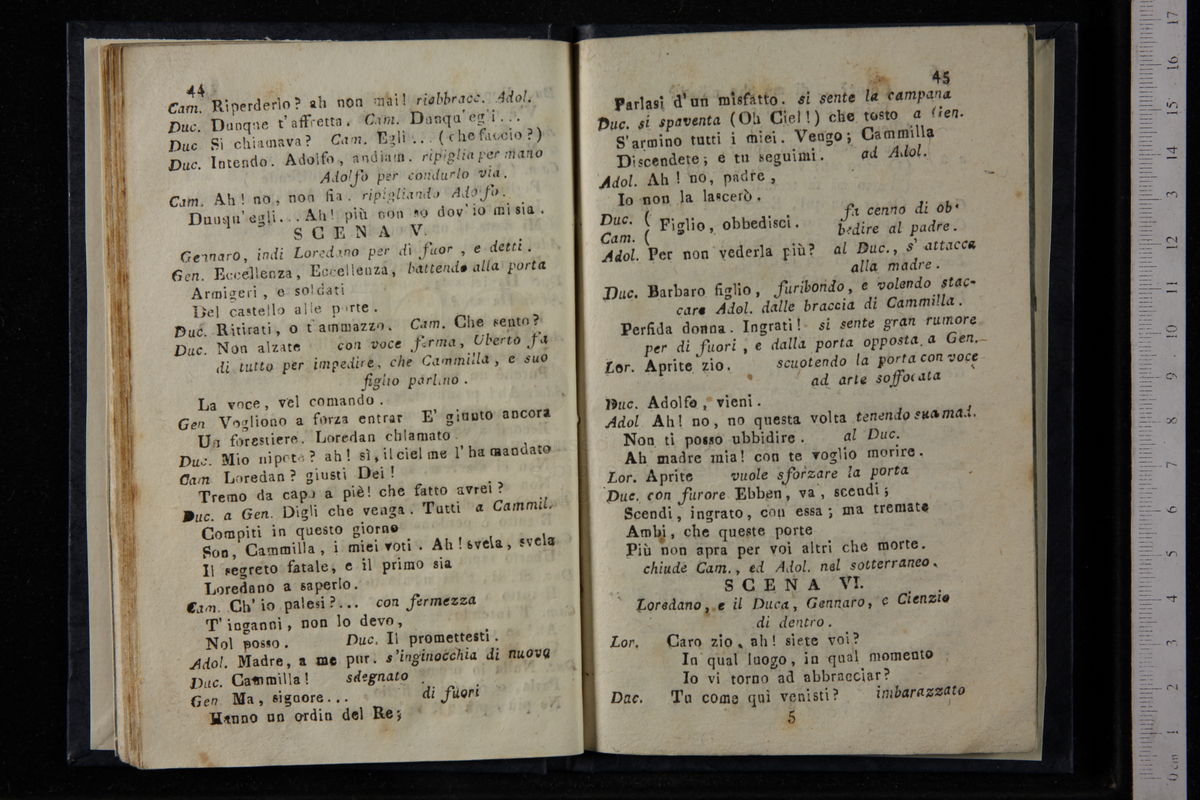 44
Cam. Riperderlo? ah non mai! riabbracc. Adol.
Duc. Dunque t'affretta. Cam. Dunqu' egli...
Duc Sì chiamava? Cam. Egli... (che faccio?)
Duc. Intendo. Adolfo, andiam. ripiglia per mano
Adolfo per condurlo via.
Cam. Ah! no, non fia. ripigliando Adolfo.
Dunqu' egli... Ah! più non so dov' io mi sia.
SCENA V.
Gennaro, indi Loredano per di fuor, e detti.
Gen. Eccellenza, Eccellenza, battendo alla porta
Armigeri, e soldati
Del castello alle porte.
Duc. Ritirati, o t'ammazzo. Cam. Che sento?
Duc. Non alzate con voce ferma, Uberto fa
di tutto per impedire, che Cammilla, e suo
figlio parlino.
La voce, vel comando.
Gen Vogliono a forza entrar E' giunto ancora
Un forestiere. Loredan chiamato.
Duc. Mio nipote? ah! sì, il ciel me l'ha mandato
Cam Loredan? giusti Dei!
Tremo da capo a piè! che fatto avrei?
Duc. a Gen. Digli che venga. Tutti a Cammil.
Compiti in questo giorno
Son, Cammilla, i miei voti. Ah! svela, svela
Il segreto fatale, e il primo sia
Loredano a saperlo.
Cam. Ch' io palesi?... con fermezza
T' inganni, non lo devo,
Nol posso. Duc. Il promettesti.
Adol. Madre, a me pur. s'inginocchia di nuovo
Duc. Cammilla! sdegnato
Gen Ma, signore... di fuori
Hanno un ordin del Re;
45
Parlasi d'un misfatto. si sente la campana
Duc. si spaventa (Oh Ciel!) che tosto a Gen.
S'armino tutti i miei. Vengo; Cammilla
Discendete; e tu seguimi. ad Adol.
Adol. Ah! no, padre,
Io non la lascerò.
Duc. ( Figlio, obbedisci. fa cenno di ob-
Cam. ( bedire al padre.
Adol. Per non vederla più? al Duc., s' attacca
alla madre.
Duc. Barbaro figlio, furibondo, e volendo stac-
care Adol. dalle braccia di Cammilla.
Perfida donna. Ingrati! si sente gran rumore
per di fuori, e dalla porta opposta a Gen.
Lor. Aprite zio. scuotendo la porta con voce
ad arte soffocata
Duc. Adolfo, vieni.
Adol Ah! no, no questa volta tenendo sua mad.
Non ti posso ubbidire. al Duc.
Ah madre mia! con te voglio morire.
Lor. Aprite vuole sforzare la porta
Duc. con furore Ebben, va, scendi;
Scendi, ingrato, con essa; ma tremate
Ambi, che queste porte
Più non apra per voi altri che morte.
chiude Cam., ed Adol. nel sotterraneo.
SCENA VI.
Loredano, e il Duca, Gennaro, e Cienzio
di dentro.
Lor. Caro zio, ah! siete voi?
In qual luogo, in qual momento
Io vi torno ad abbracciar?
Duc. Tu come qui venisti? imbarazzato
5